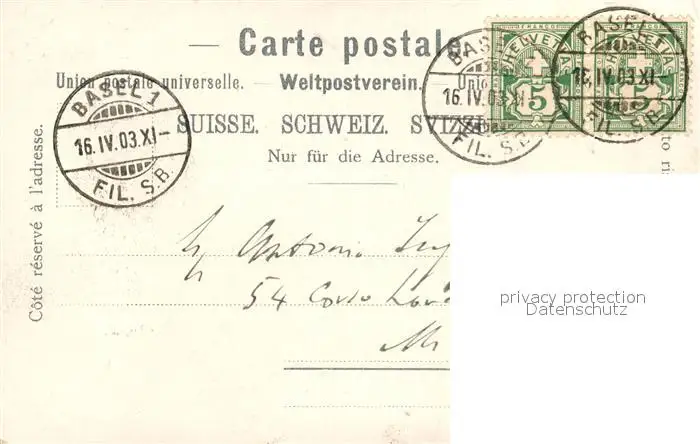 Carte postale.
Union postale universelle. — Weltpostverein. — Unio
SUISSE. SCHWEIZ. SVIZZ
Nur für die Adresse.
Côté réservé à l'adresse.
BASEL 1
16.IV.03.XI–
FIL. S.B.
BASEL
16.IV.03.XI
FIL. S.B.
BASEL
16.IV.03.XI–
FIL. S.B.
FRANCO
HELVETIA
5
FRANCO
HELVETIA
Antonio
54 Corso
privacy protection
Datenschutz